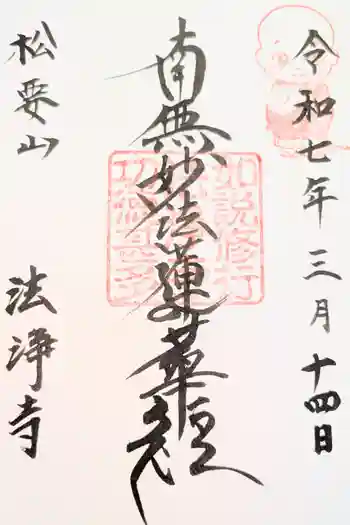 令和七年三月十四日
南無妙法蓮華経
如説修行
功徳甚多
松要山
法浄寺